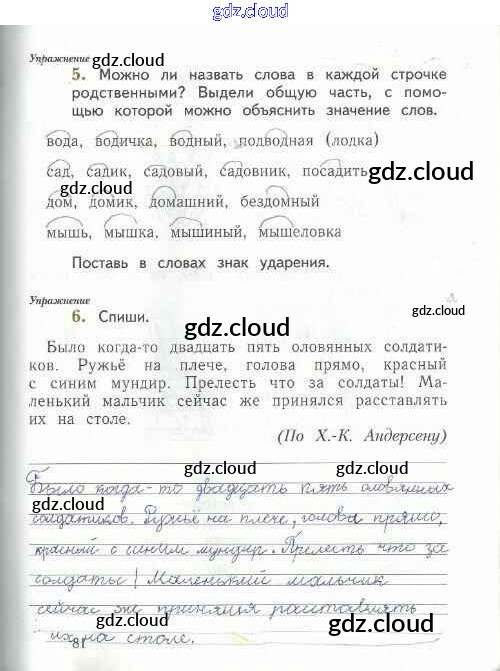 gdz.cloud
Упражнение
gdz.cloud
5. Можно ли назвать слова в каждой строчке
родственными? Выдели общую часть, с помо-
щью которой можно объяснить значение слов.
gdz.cloud gdz.cloud
вода, водичка, водный, подводная (лодка)
сад, садик, садовый, садовник, посадить
gdz.cloud
gdz.cloud
дом, домик, домашний, бездомный
мышь, мышка, мышиный, мышеловка
Поставь в словах знак ударения.
Упражнение
6. Спиши.
gdz.cloud
gdz.cloud
Было когда-то двадцать пять оловянных солдати-
ков. Ружьё на плече, голова прямо, красный
с синим мундир. Прелесть что за солдаты! Ма-
ленький мальчик сейчас же принялся расставлять
их на столе.
gdz.cloud
(По Х.-К. Андерсену)
gdz.cloud gdz.cloud
Было когда-то двадцать пять оловянных
солдатиков. Ружьё на плече, голова прямо,
красный с синим мундир. Прелесть что за
gdz.cloud
солдаты! Маленький мальчик
gdz.cloud
сейчас же принялся расставлять
их на столе.
81
gdz.cloud
gdz.cloud